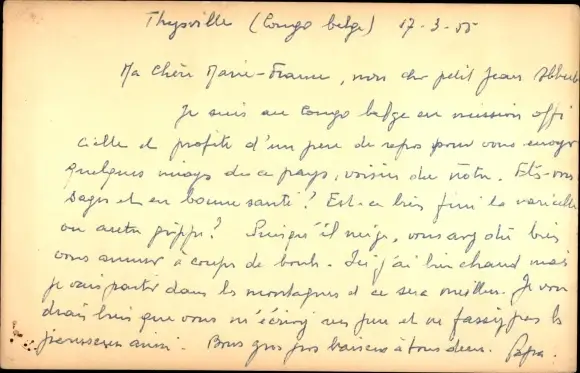 Thysville (Congo belge) 17-3-55
Ma Chère Marie-France, mon cher petit Jean
Je suis au Congo belge en mission offi
cielle et profite d'un peu de repos pour vous envoyer
quelques images de ce pays, voisin du nôtre. Etes-vous
sages et en bonne santé? Est-ce bien fini la varicelle
ou autre grippe? Puisqu'il neige, vous avez dû bien
vous amuser à coups de boule. Ici j'ai bien chaud mais
je vais partir dans les montagnes et ce sera meilleur. Je vou
drais bien que vous m'écriviez un peu et ne fassiez pas les
paresseux ainsi. Bons gros gros baisers à tous deux. Papa.